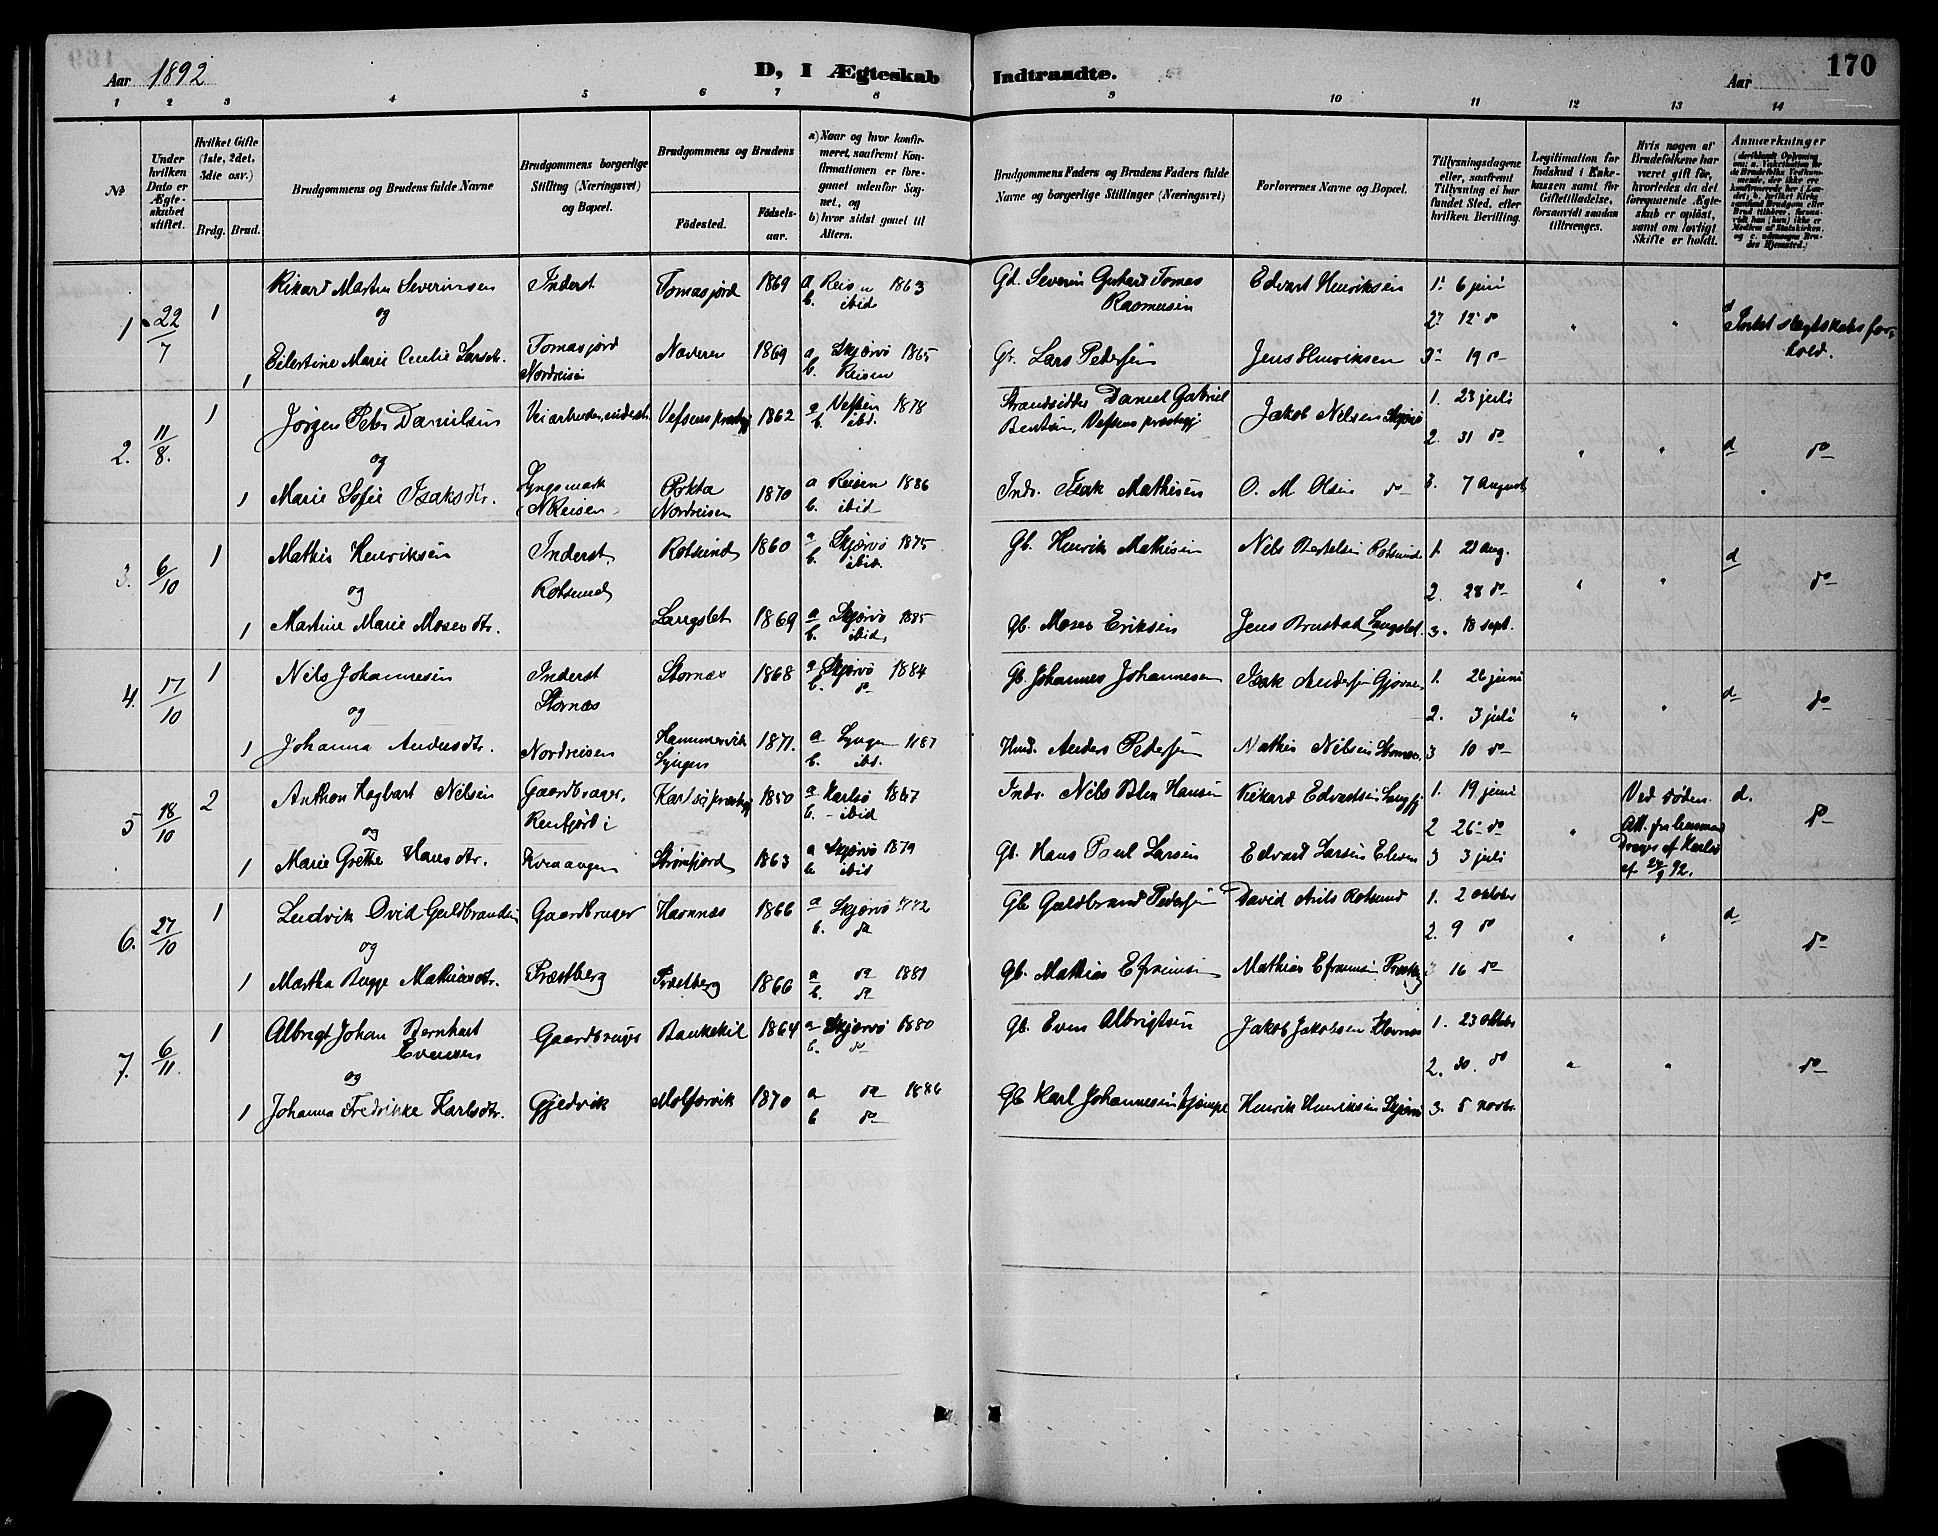 Aar 1892
D, I Ægteskab Indtraadte.
Aar
170
1 2 3 4 5 6 7 8 9 10 11 12 13 14
No
Under hvilken Dato er Ægteskabet stiftet.
Hvilket Gifte (1ste, 2det, 3die osv.)
Brdg. Brud.
Brudgommens og Brudens fulde Navne
Brudgommens borgerlige Stilling (Næringsvei) og Bopæl.
Brudgommens og Brudens
Fødested. Fødselsaar.
a) Naar og hvor konfirmeret, saafremt Konfirmationen er foregaaet udenfor Sognet, og
b) hvor sidst gaaet til Alters.
Brudgommens Faders og Brudens Faders fulde Navne og borgerlige Stillinger (Næringsvei)
Forlovernes Navne og Bopæl.
Tillysningsdagene eller, saafremt Tillysning ei har fundet Sted, efter hvilken Bevilling.
Legitimation for Indskud i Enkekassen samt for Giftetilladelse, forsaavidt saadan tiltrænges.
Hvis nogen af Brudefolkene har været gift før, hvorledes da det foregaaende Ægteskab er opløst, samt om lovligt Skifte er holdt.
Anmærkninger
1. 22/7 1 Rikard Martin Severinsen Inderst Tomasjord 1869 a Reisen 1863 Gd. Severin Gerhart Tomas Edvart Henriksen 1. 6 juni
og b. ibid Rasmusen 2. 12 do " " d Intet slegtskabsforhold.
1 Eilertine Marie Cecilie Larsdtr. Tomasjord Nordreisen Naveren 1869 a Skjervø 1865 Lars Pedersen Jens Henriksen 3. 19 do
b. Reisen
2. 11/8. 1 Jørgen Peter Danielsen Veiarbeider, inderst. Vefsens præstegj 1862 a Vefsen 1878 Strandsidder Daniel Gabriel Jakob Nilsen Skjervø 1. 23 juli
og b. ibd. Bentsen, Vefsens præstegj 2. 31 do " " d do
1 Marie Sofie Isaksdtr. Lyngsmark N Reisen Nordreisen 1870 a Reisen 1886 Inds. Isak Mathisen O. M. Olsen do 3. 7 August
b. ibid
3. 6/10 1 Mathis Henriksen Inderst Rotsund 1860 a Skjervø 1875 Gb. Henrik Mathisen Nils Bertelsen Rotsund 1. 21 Aug.
og Rotsund b. ibid. 2. 28 do " " d do
1 Martine Marie Mosesdtr. Langslet 1869 a Skjervø 1885 Gb. Moses Eriksen Jens Brustad Langslet. 3. 18 sept.
b. ibid,
4. 17/10 1 Nils Johannesen Inderst Stornæs 1868 a Skjervø 1884 Gb. Johannes Johannesen Isak Andersen 1. 26 juni
og Stornæs b. do 2. 3 juli " " d do
1 Johanna Andersdtr. Nordreisen Hammervik Lyngen 1871. a Lyngen Anders Pedersen Mathis Nilsen Stornæs. 3 10 do
b. ibd.
5 18/10 2 Anthon Hagbart Nilsen Gaardbruger, Karlsø præstegj 1850 a Karlsø 1867 Inds. Nils Hansen Rikard Edvardsen 1. 19 juni Ved døden. d.
og i b. - ibid 2 26 do " Att. fra lensmand do
1 Marie Grethe Hansdtr. Kvænangen Strømfjord 1863 a Skjervø 1879 Gb. Hans Paul Larsen Edvart Larsen 3 3 juli af Karlsø af 24/9 92.
b. ibid
6. 27/10 1 Ludvik Ovid Guldbrandsen Gaardbruger Havnnæs 1866 a Skjervø Gb. Guldbrand Pedersen David Rotsund 1. 2 Oktober
og b. do 2. 9 do " " d do
1 Martha Bugge Mathiasdtr. Præstberg Præstberg 1866 a do 1881 Gb. Mathias Efraimsen Mathias Efraimsen 3 16 do
b. do
7. 6/11. 1 Albregt Johan Bernhart Gaardbruger Baukekil 1864 a Skjervø 1880 Gb. Even Albrigtsen Jakob Jakobsen 1. 23 oktbr
Evensen b. do 2. 30. do " " do
og
1 Johanna Fredrikke Karlsdtr. Gjedvik Molforvik 1870 a do 1886 Gb Karl Johannesen Kjempe Henrik Henriksen Skjervø 3. 5 novbr.
b do